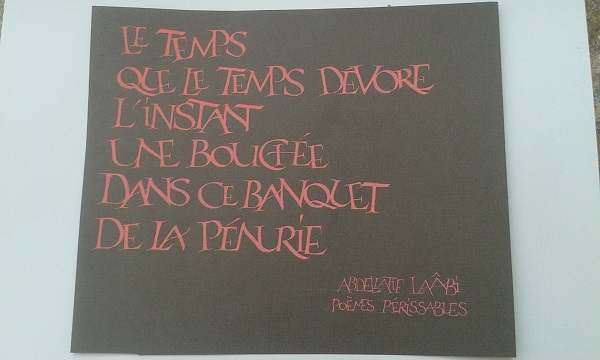 LE TEMPS
QUE LE TEMPS DÉVORE
L'INSTANT
UNE BOUCHÉE
DANS CE BANQUET
DE LA PÉNURIE
ABDELLATIF LAÂBI
POÈMES PÉRISSABLES